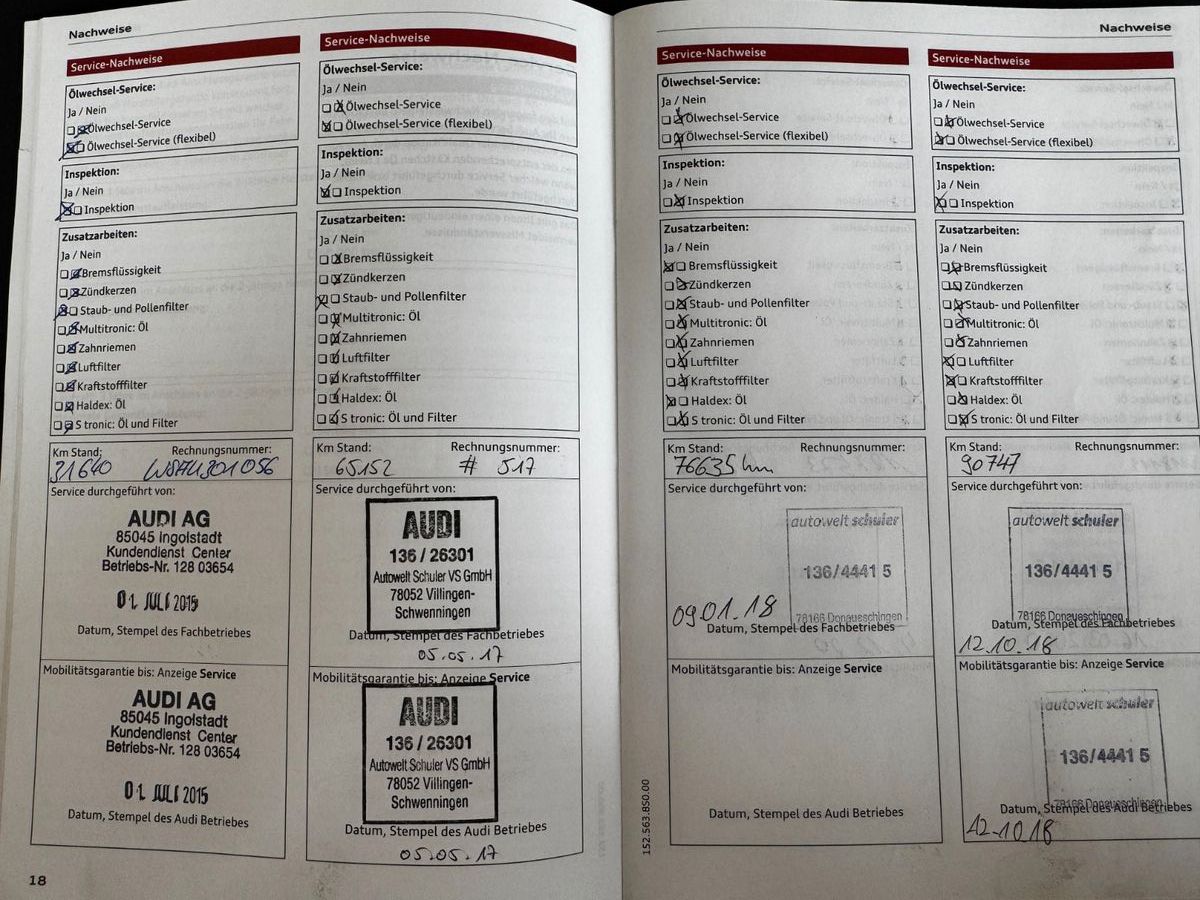 Nachweise
Service-Nachweise
Ölwechsel-Service:
Ja / Nein
Ölwechsel-Service
Ölwechsel-Service (flexibel)
Inspektion:
Ja / Nein
Inspektion
Zusatzarbeiten:
Ja / Nein
Bremsflüssigkeit
Zündkerzen
Staub- und Pollenfilter
Multitronic: Öl
Zahnriemen
Luftfilter
Kraftstofffilter
Haldex: Öl
S tronic: Öl und Filter
Km Stand: Rechnungsnummer:
31640
Service durchgeführt von:
AUDI AG
85045 Ingolstadt
Kundendienst Center
Betriebs-Nr. 128 03654
01. JULI 2015
Datum, Stempel des Fachbetriebes
Mobilitätsgarantie bis: Anzeige Service
AUDI AG
85045 Ingolstadt
Kundendienst Center
Betriebs-Nr. 128 03654
01. JULI 2015
Datum, Stempel des Audi Betriebes
18
Service-Nachweise
Ölwechsel-Service:
Ja / Nein
Ölwechsel-Service
Ölwechsel-Service (flexibel)
Inspektion:
Ja / Nein
Inspektion
Zusatzarbeiten:
Ja / Nein
Bremsflüssigkeit
Zündkerzen
Staub- und Pollenfilter
Multitronic: Öl
Zahnriemen
Luftfilter
Kraftstofffilter
Haldex: Öl
S tronic: Öl und Filter
Km Stand: Rechnungsnummer:
65152 # 517
Service durchgeführt von:
AUDI
136 / 26301
Autowelt Schuler VS GmbH
78052 Villingen-
Schwenningen
Datum, Stempel des Fachbetriebes
05.05.17
Mobilitätsgarantie bis: Anzeige Service
AUDI
136 / 26301
Autowelt Schuler VS GmbH
78052 Villingen-
Schwenningen
Datum, Stempel des Audi Betriebes
05.05.17
Nachweise
Service-Nachweise
Ölwechsel-Service:
Ja / Nein
Ölwechsel-Service
Ölwechsel-Service (flexibel)
Inspektion:
Ja / Nein
Inspektion
Zusatzarbeiten:
Ja / Nein
Bremsflüssigkeit
Zündkerzen
Staub- und Pollenfilter
Multitronic: Öl
Zahnriemen
Luftfilter
Kraftstofffilter
Haldex: Öl
S tronic: Öl und Filter
Km Stand: Rechnungsnummer:
76635 km
Service durchgeführt von:
autowelt schuler
136/4441 5
78166 Donaueschingen
09.01.18
Datum, Stempel des Fachbetriebes
Mobilitätsgarantie bis: Anzeige Service
Datum, Stempel des Audi Betriebes
152.563.850.00
Service-Nachweise
Ölwechsel-Service:
Ja / Nein
Ölwechsel-Service
Ölwechsel-Service (flexibel)
Inspektion:
Ja / Nein
Inspektion
Zusatzarbeiten:
Ja / Nein
Bremsflüssigkeit
Zündkerzen
Staub- und Pollenfilter
Multitronic: Öl
Zahnriemen
Luftfilter
Kraftstofffilter
Haldex: Öl
S tronic: Öl und Filter
Km Stand: Rechnungsnummer:
90747
Service durchgeführt von:
autowelt schuler
136/4441 5
78166 Donaueschingen
Datum, Stempel des Fachbetriebes
12.10.18
Mobilitätsgarantie bis: Anzeige Service
autowelt schuler
136/4441 5
78166 Donaueschingen
Datum, Stempel des Audi Betriebes
12.10.18